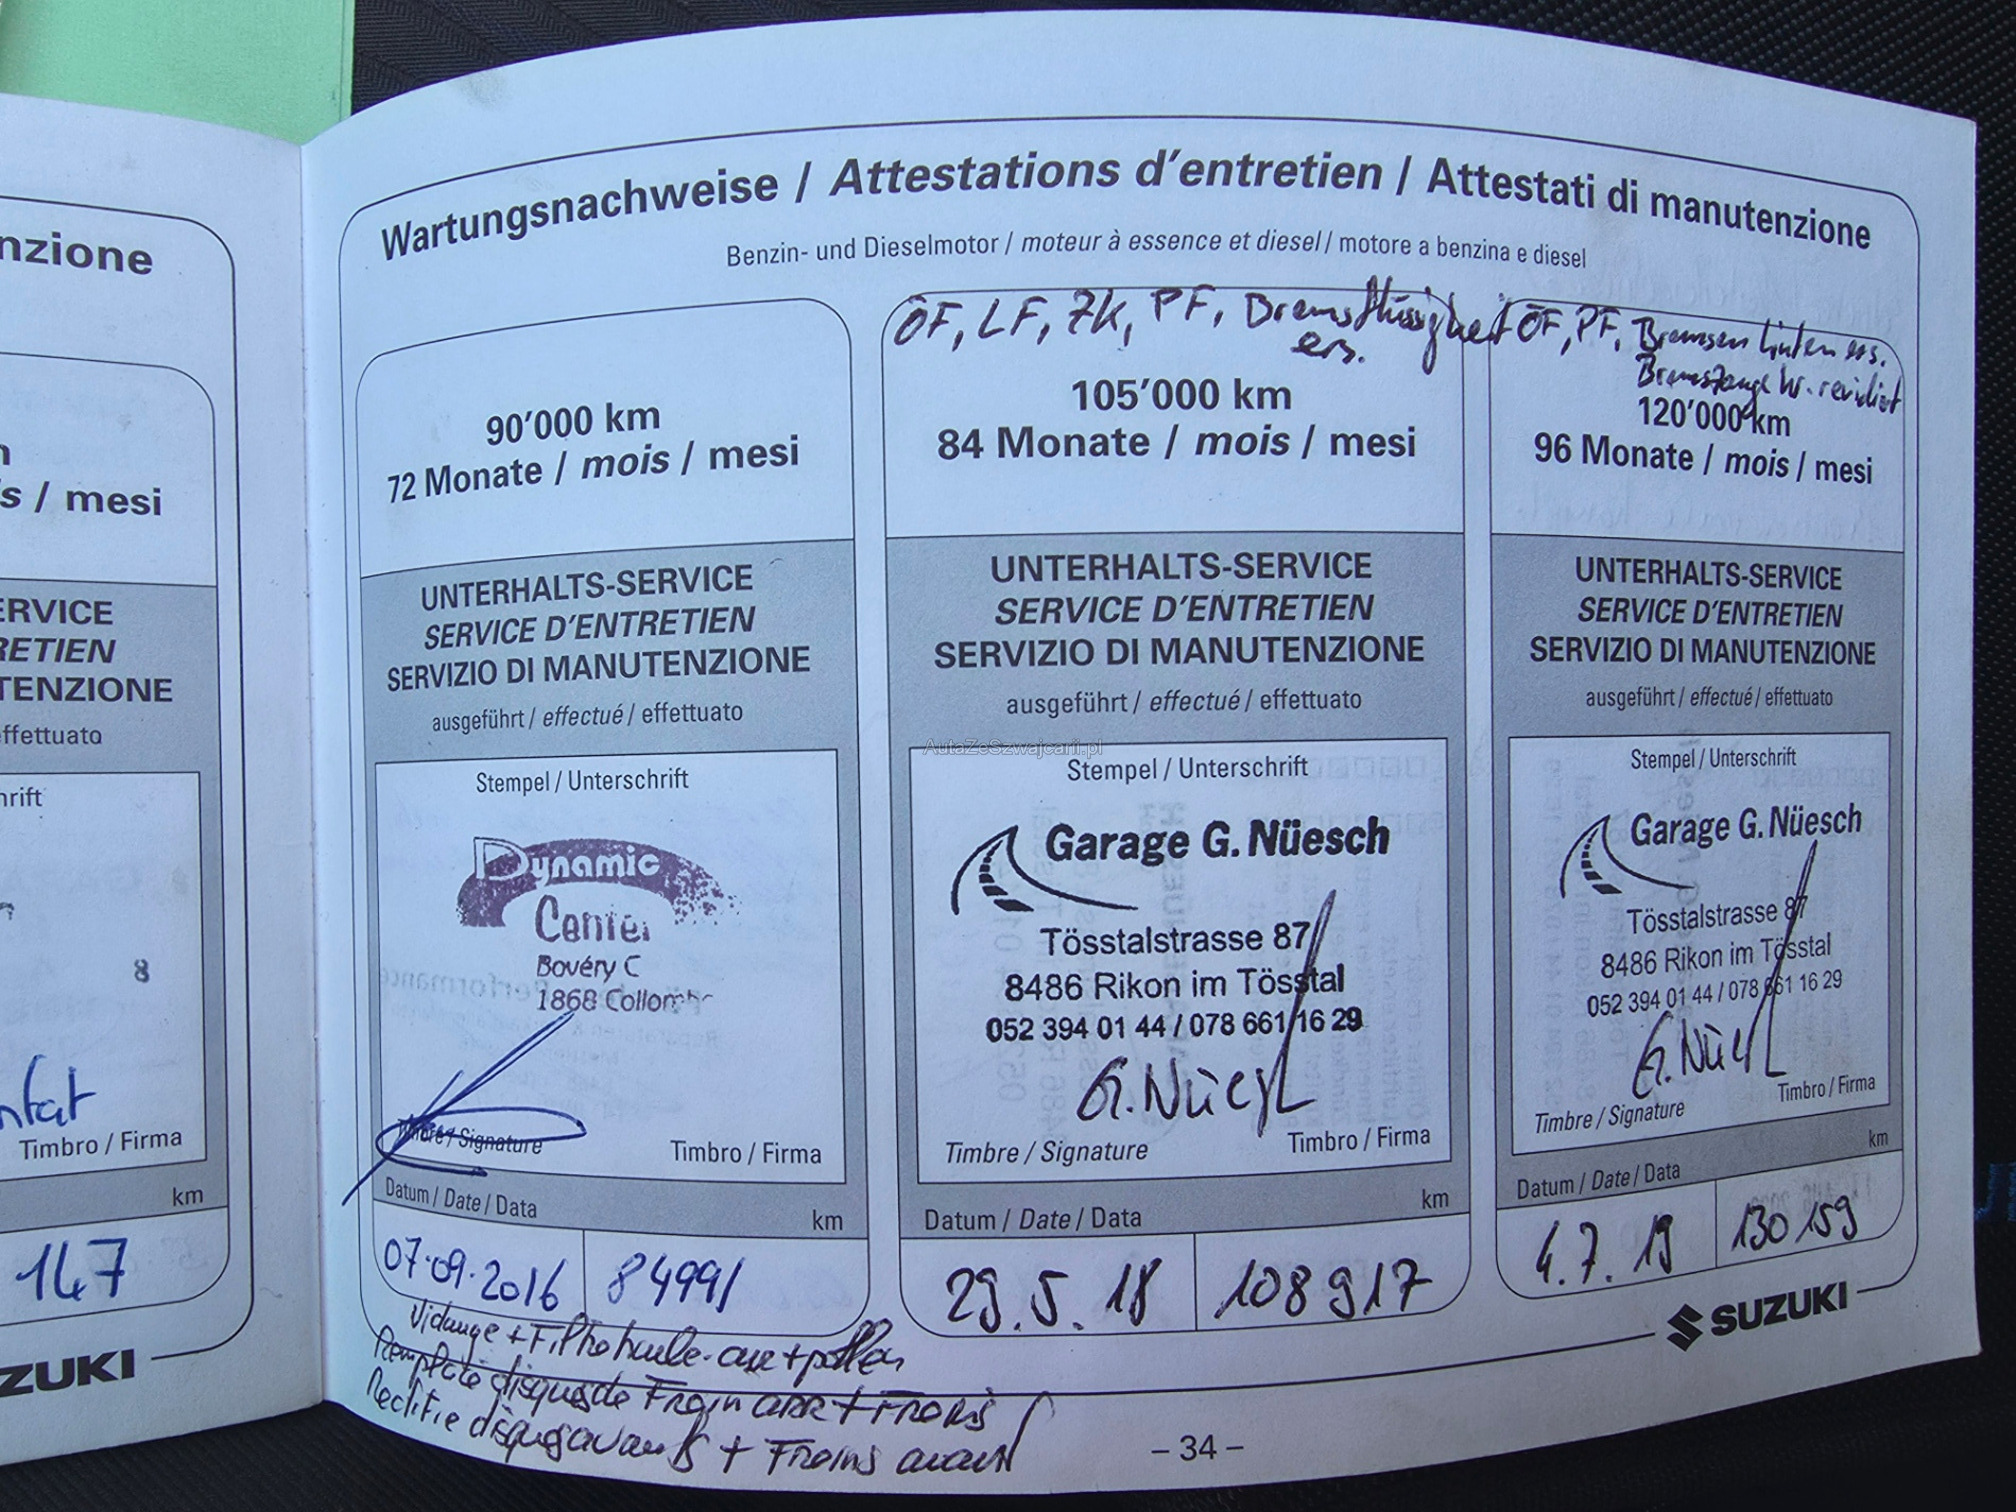 nzione
s / mesi
ERVICE
RETIEN
TENZIONE
effettuato
hrift
8
Timbro / Firma
km
147
ZUKI
Wartungsnachweise / Attestations d'entretien / Attestati di manutenzione
Benzin- und Dieselmotor / moteur à essence et diesel / motore a benzina e diesel
90'000 km
72 Monate / mois / mesi
UNTERHALTS-SERVICE
SERVICE D'ENTRETIEN
SERVIZIO DI MANUTENZIONE
ausgeführt / effectué / effettuato
Stempel / Unterschrift
Dynamic
Center
Bovéry C
1868 Collomb
Timbre / Signature
Timbro / Firma
Datum / Date / Data
km
07.09.2016
84991
Vidange + Filtre huile - air + pollen
Remplacé disques de Frein arr + Freins
Rectifie disques avants + Freins avant
ÖF, LF, ZK, PF, Bremsflüssigkeit
ers.
105'000 km
84 Monate / mois / mesi
UNTERHALTS-SERVICE
SERVICE D'ENTRETIEN
SERVIZIO DI MANUTENZIONE
ausgeführt / effectué / effettuato
AutaZeSzwajcarii.pl
Stempel / Unterschrift
Garage G. Nüesch
Tösstalstrasse 87
8486 Rikon im Tösstal
052 394 01 44 / 078 661 16 29
G. Nüesch
Timbre / Signature
Timbro / Firma
Datum / Date / Data
km
29.5.18
108917
ÖF, PF, Bremsen hinten ers.
Bremszange h. revidiert
120'000 km
96 Monate / mois / mesi
UNTERHALTS-SERVICE
SERVICE D'ENTRETIEN
SERVIZIO DI MANUTENZIONE
ausgeführt / effectué / effettuato
Stempel / Unterschrift
Garage G. Nüesch
Tösstalstrasse 87
8486 Rikon im Tösstal
052 394 01 44 / 078 661 16 29
G. Nüesch
Timbre / Signature
Timbro / Firma
Datum / Date / Data
km
4.7.19
130159
SUZUKI
– 34 –